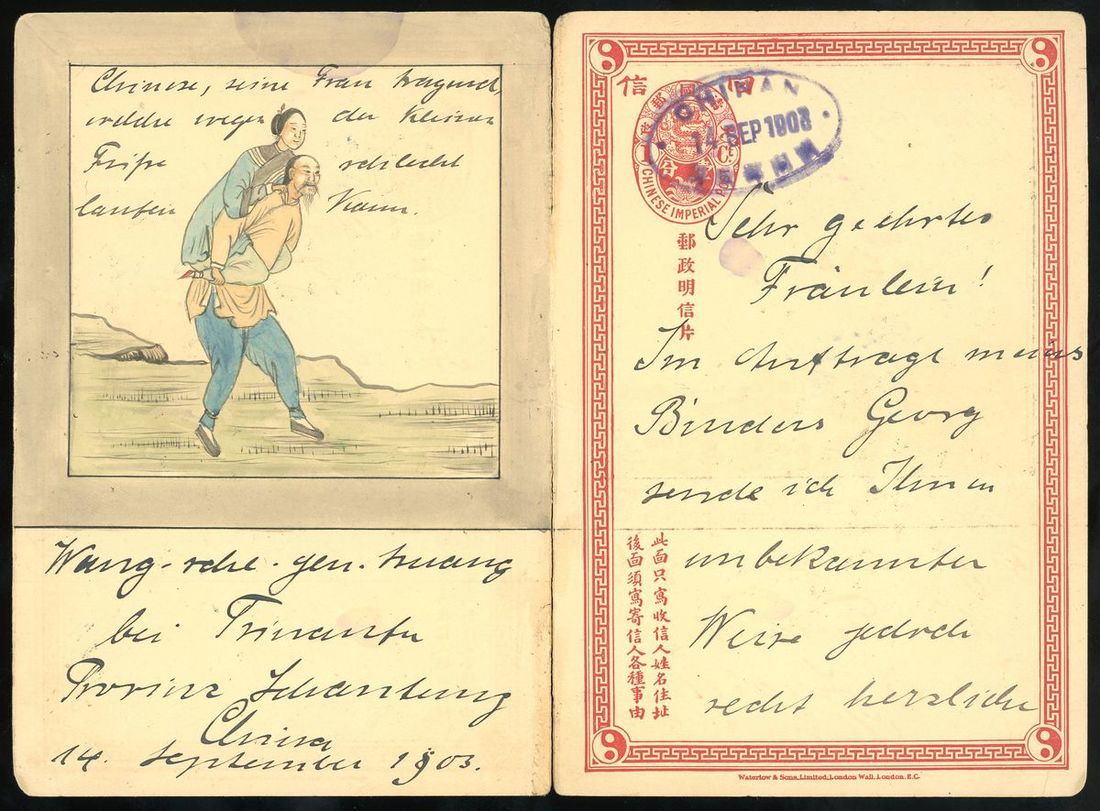 Chinese, seine Frau tragend,
welche wegen der kleinen
Füsse schlecht
laufen kann.
bei Tsinanfu
Provinz Schantung
China
14. September 1903.
信 回
大清國郵政
1 Ct
CHINESE IMPERIAL POST
CHINAN
14 SEP 1903
郵政明信片
Sehr geehrtes
Fräulein!
Im Auftrage meines
Bruders Georg
sende ich Ihnen
unbekannter
Weise jedoch
recht herzliche
此面只寫收信人姓名住址
後面須寫寄信人各種事由
Waterlow & Sons, Limited, London Wall, London. E.C.